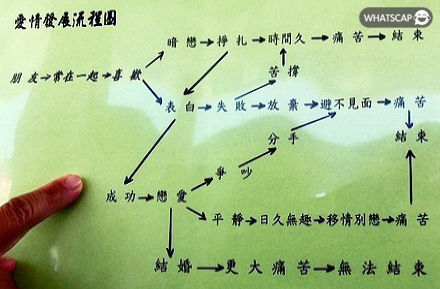 愛情發展流程圖
WHATSCAP
暗戀→掙扎→時間久→痛苦→結束
苦撐
朋友→常在一起→喜歡
表白→失敗→放棄→避不見面→痛苦
分手
結束
爭吵
成功→戀愛
平靜→日久無趣→移情別戀→痛苦
結婚→更大痛苦→無法結束